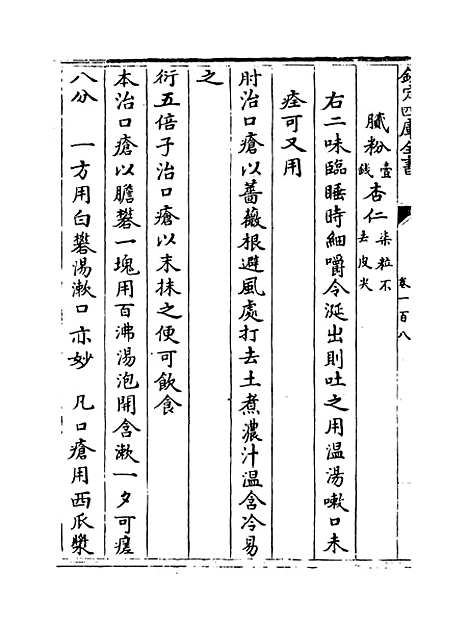 欽定四庫全書
卷一百八
膩粉壹錢杏仁柒粒不去皮尖
右二味臨睡時細嚼令涎出則吐之用温湯嗽口未
痊可又用
肘治口瘡以薔薇根避風處打去土煮濃汁温含冷易
之
衍五倍子治口瘡以末抹之便可飲食
本治口瘡以膽礬一塊用百沸湯泡開含漱一夕可瘥
八分　一方用白礬湯漱口亦妙　凡口瘡用西瓜漿